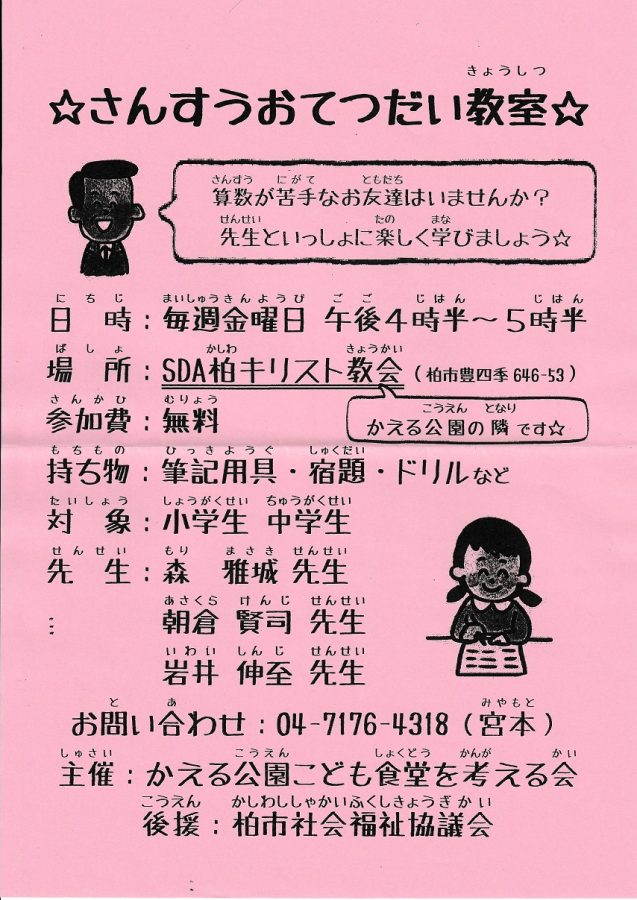 きょうしつ
☆さんすうおてつだい教室☆
さんすう にがて ともだち
算数が苦手なお友達はいませんか？
せんせい たの まな
先生といっしょに楽しく学びましょう☆
にちじ まいしゅうきんようび ごご じはん じはん
日時：毎週金曜日 午後4時半～5時半
ばしょ かしわ きょうかい
場所：SDA柏キリスト教会（柏市豊四季646-53）
さんかひ むりょう
参加費：無料
こうえん となり
かえる公園の隣です☆
もちもの ひっきようぐ しゅくだい
持ち物：筆記用具・宿題・ドリルなど
たいしょう しょうがくせい ちゅうがくせい
対象：小学生 中学生
せんせい もり まさき せんせい
先生：森 雅城 先生
あさくら けんじ せんせい
朝倉 賢司 先生
いわい しんじ せんせい
岩井 伸至 先生
と あ みやもと
お問い合わせ：04-7176-4318（宮本）
しゅさい こうえん しょくどう かんが かい
主催：かえる公園こども食堂を考える会
こうえん かしわししゃかいふくしきょうぎかい
後援：柏市社会福祉協議会